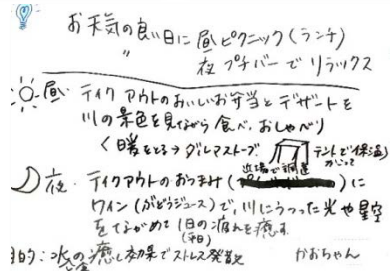 お天気の良い日に 昼 ピクニック(ランチ)
〃 夜 プチバーで リラックス
昼. テイクアウトのおいしいお弁当とデザートを
川の景色を見ながら食べ、おしゃべり
く暖をとる→ダルマストーブ. テントで保温
夜. テイクアウトのおつまみ( 近場で調達 )に
ワイン(ぶどうジュース)で、川にうつった光や星空
をながめて1日の疲れを癒す
(平日)
目的: 水の癒し効果でストレス発散 かおちゃん